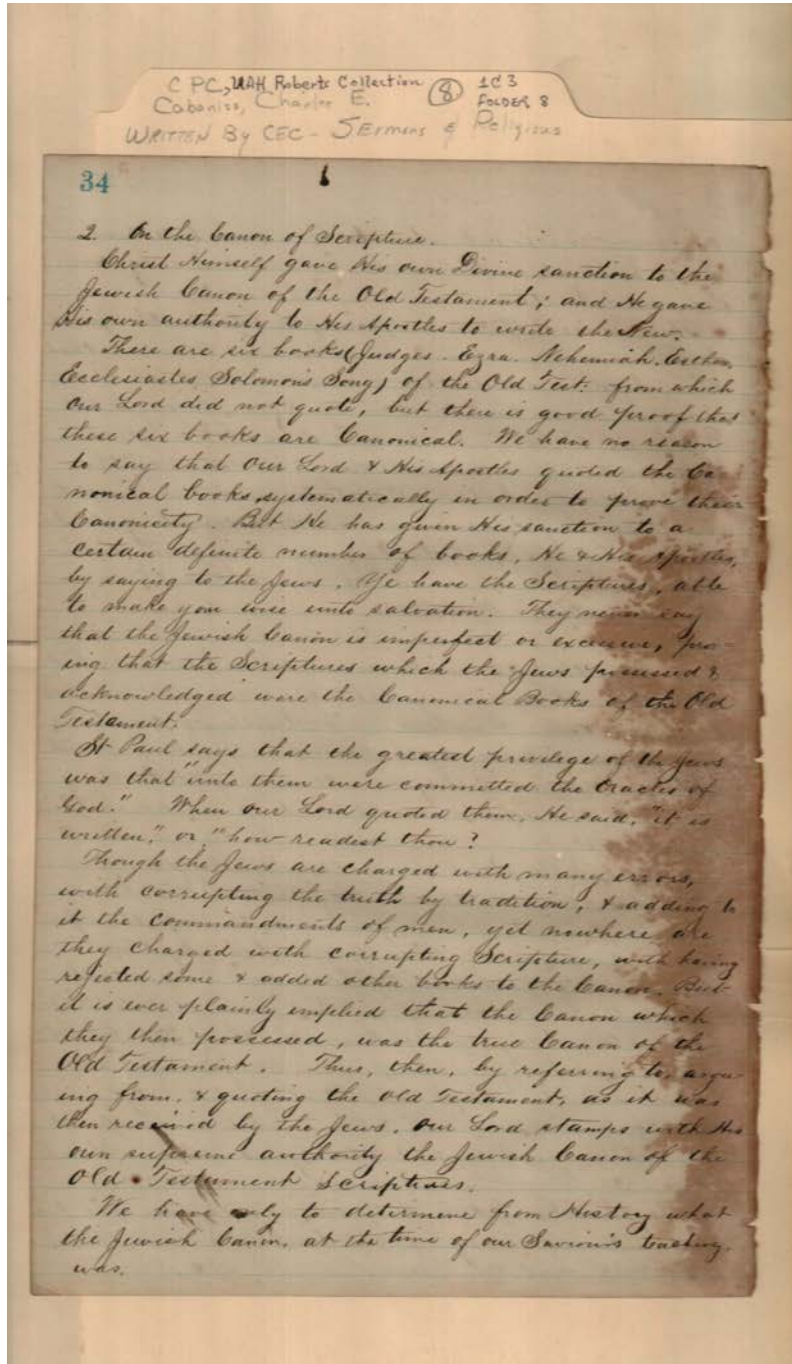 C PC, UAH Roberts Collection
Cabaniss, Charles E.
8
1C3
FOLDER 8
WRITTEN By CEC - SErmons & Religious
34
2. On the Canon of Scripture.
Christ Himself gave His own Divine sanction to the
Jewish Canon of the Old Testament; and He gave
His own authority to His Apostles to write the New.
There are six books (Judges. Ezra. Nehemiah. Esther.
Ecclesiastes Solomon's Song) of the Old Test: from which
Our Lord did not quote, but there is good proof that
these six books are Canonical. We have no reason
to say that Our Lord & His Apostles quoted the Ca-
nonical books systematically in order to prove their
Canonicity. But He has given His sanction to a
certain definite number of books, He & His Apostles,
by saying to the Jews. Ye have the Scriptures, able
to make you wise unto salvation. They never say
that the Jewish Canon is imperfect or excessive, prov-
ing that the Scriptures which the Jews possessed &
acknowledged were the Canonical Books of the Old
Testament.
St Paul says that the greatest privilege of the Jews
was that "unto them were committed the Oracles of
God." When our Lord quoted them, He said, "it is
written," or "how readest thou?
Though the Jews are charged with many errors,
with corrupting the truth by tradition, & adding to
it the commandments of men, yet nowhere are
they charged with corrupting Scripture, with having
rejected some & added other books to the Canon. But
it is ever plainly implied that the Canon which
they then possessed, was the true Canon of the
Old Testament. Thus, then, by referring to, argu-
ing from, & quoting the Old Testament, as it was
then received by the Jews, our Lord stamps with His
own supreme authority the Jewish Canon of the
Old Testament Scriptures.
We have only to determine from History what
the Jewish Canon, at the time of our Saviour's teaching,
was.